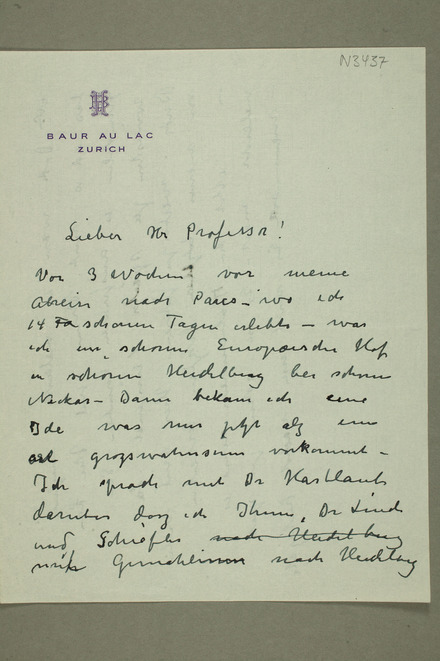 N3437
BAUR AU LAC
ZURICH
Lieber Hr Professor!
Vor 3 Wochen vor meine
Abreise nach Paris – wo ich
14 schonen Tagen erlebte – was
ich im "schonen Europaische Hof
in schonen Heidelberg bei schone
Neckar – Dann bekam ich eine
Ide was mir jetzt als ein
art groszwahnsinn vorkommt –
Ich sprach mit Dr Hartlaub
daruber dasz ich Ihnen, Dr
und nach Heidelberg
nach Heidelberg